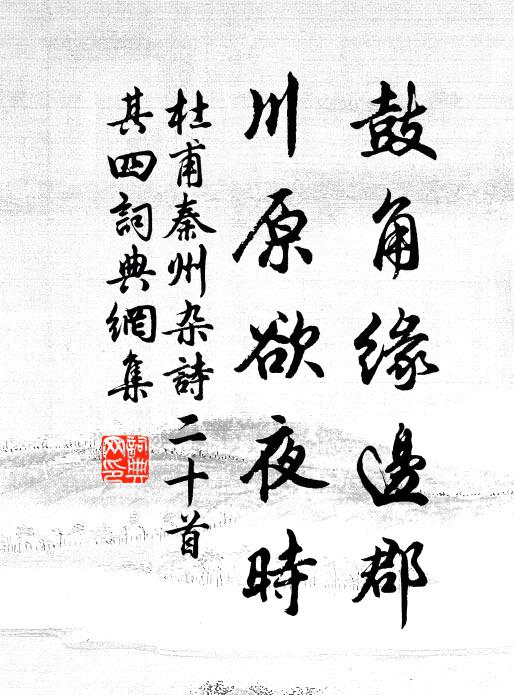 鼓角緣邊郡
川原欲夜時
杜甫秦州杂詩二十首
其四詞典網集
詞典网印